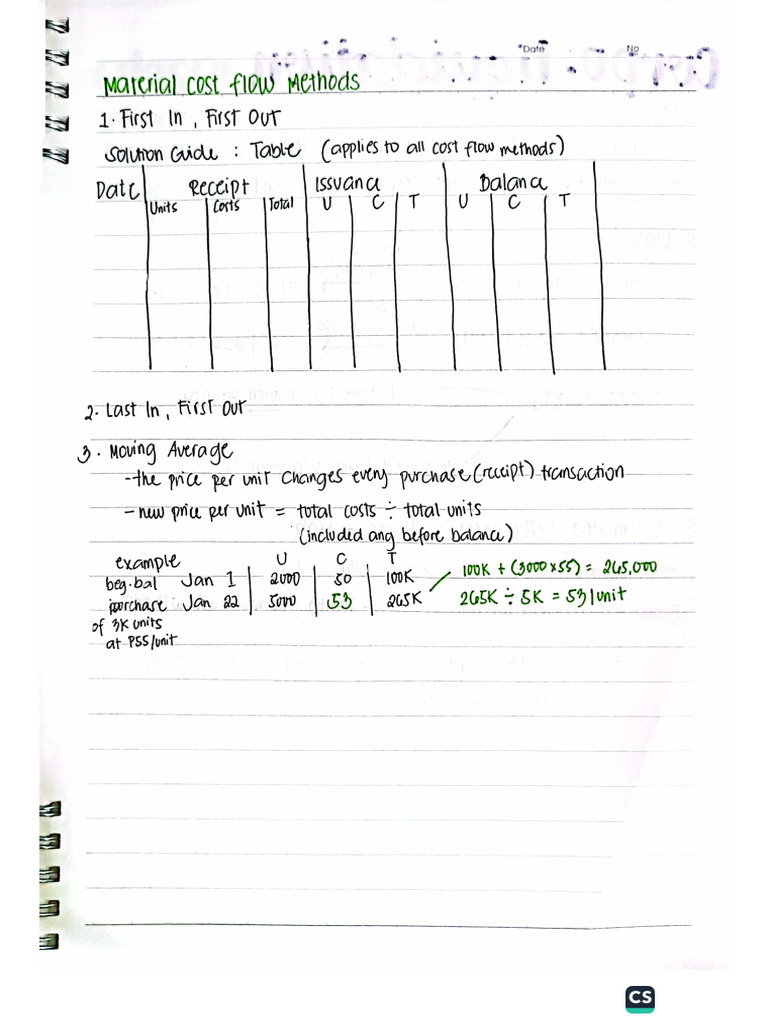 Date No
Material Cost Flow Methods
1. First In, First Out
Solution Guide : Table (applies to all cost flow methods)
Date Receipt Issuance Balance
Units Costs Total U C T U C T
2. Last In, First Out
3. Moving Average
- the price per unit changes every purchase (receipt) transaction
- new price per unit = total costs ÷ total units
(included ang before balance)
example U C T
beg. bal Jan 1 2000 50 100K 100K + (3000 x 55) = 265,000
purchase Jan 22 5000 53 265K 265K ÷ 5K = 53/unit
of 3K units
at P55/unit
CS